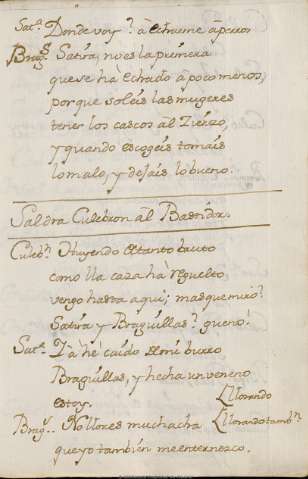 Sat.ª Donde voy? à echarme à perder
Brag.s Satira, no es la primera
que se hà echado à poco menos,
porque soleis las mugeres
tener los cascos àl
y quando escogeis tomais
lo malo, y dejais lo bueno.
Saldra Culebron àl Bastidor.
Culeb.n Huyendo
como lla casa hà rebuelto
vengo hasta aqui; mas que miro?
Satira y Braguillas? que no!
Sat.ª Ya hè caido
Braguillas, y hecha un veneno
estoy. Llorando
Brag.s No llores muchacha Llorando tamb.n
que yo tambien me enternezco.